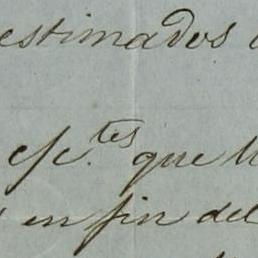 estimados
c/c.tes que
en fin del